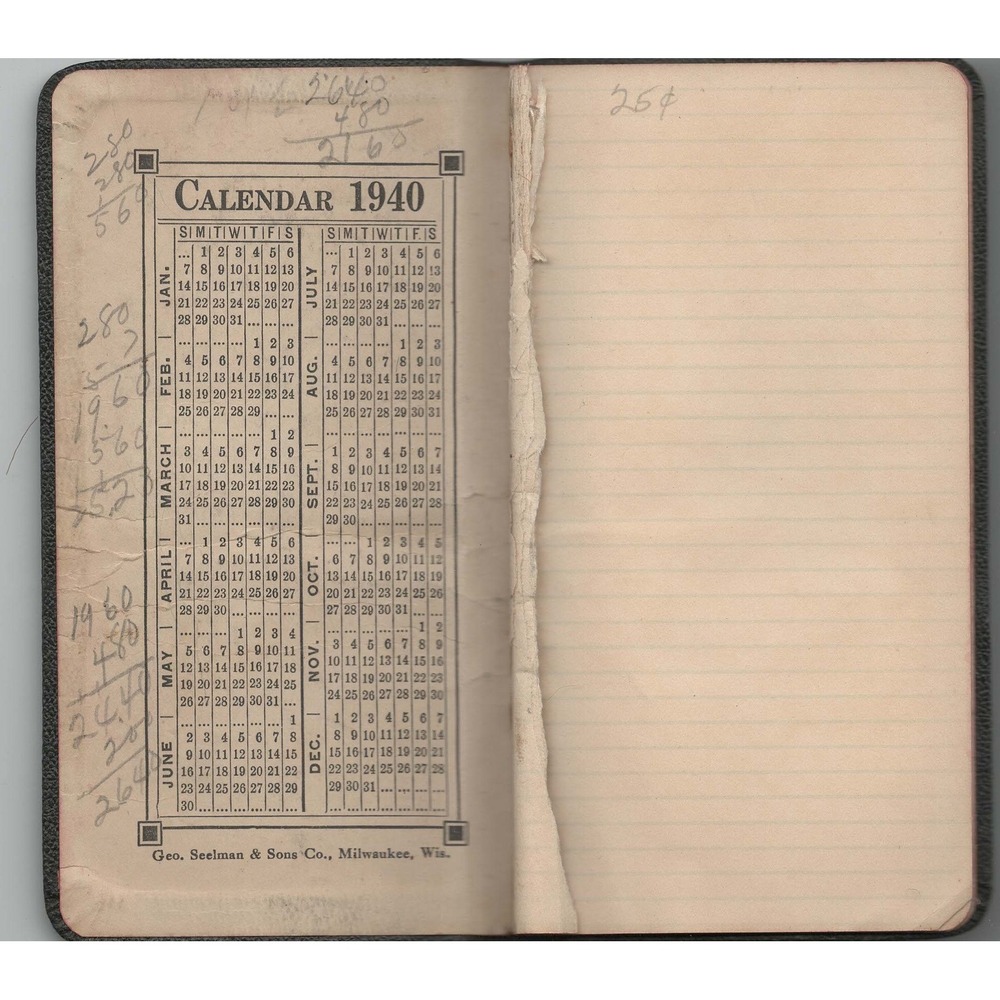 2640
480
2160
25¢
280
280
560
280
7
1960
560
1960
480
24.40
200
2640
CALENDAR 1940
S M T W T F S
JAN.
... 1 2 3 4 5 6
7 8 9 10 11 12 13
14 15 16 17 18 19 20
21 22 23 24 25 26 27
28 29 30 31 ... ... ...
FEB.
... ... ... ... 1 2 3
4 5 6 7 8 9 10
11 12 13 14 15 16 17
18 19 20 21 22 23 24
25 26 27 28 29 ... ...
MARCH
... ... ... ... ... 1 2
3 4 5 6 7 8 9
10 11 12 13 14 15 16
17 18 19 20 21 22 23
24 25 26 27 28 29 30
31 ... ... ... ... ... ...
APRIL
... 1 2 3 4 5 6
7 8 9 10 11 12 13
14 15 16 17 18 19 20
21 22 23 24 25 26 27
28 29 30 ... ... ... ...
MAY
... ... ... 1 2 3 4
5 6 7 8 9 10 11
12 13 14 15 16 17 18
19 20 21 22 23 24 25
26 27 28 29 30 31 ...
JUNE
... ... ... ... ... ... 1
2 3 4 5 6 7 8
9 10 11 12 13 14 15
16 17 18 19 20 21 22
23 24 25 26 27 28 29
30 ... ... ... ... ... ...
S M T W T F. S
JULY
... 1 2 3 4 5 6
7 8 9 10 11 12 13
14 15 16 17 18 19 20
21 22 23 24 25 26 27
28 29 30 31 ... ... ...
AUG.
... ... ... ... 1 2 3
4 5 6 7 8 9 10
11 12 13 14 15 16 17
18 19 20 21 22 23 24
25 26 27 28 29 30 31
SEPT.
... ... ... ... ... ... ...
1 2 3 4 5 6 7
8 9 10 11 12 13 14
15 16 17 18 19 20 21
22 23 24 25 26 27 28
29 30 ... ... ... ... ...
OCT.
... ... 1 2 3 4 5
6 7 8 9 10 11 12
13 14 15 16 17 18 19
20 21 22 23 24 25 26
27 28 29 30 31 ... ...
NOV.
... ... ... ... ... 1 2
3 4 5 6 7 8 9
10 11 12 13 14 15 16
17 18 19 20 21 22 23
24 25 26 27 28 29 30
DEC.
1 2 3 4 5 6 7
8 9 10 11 12 13 14
15 16 17 18 19 20 21
22 23 24 25 26 27 28
29 30 31 ... ... ... ...
Geo. Seelman & Sons Co., Milwaukee, Wis.